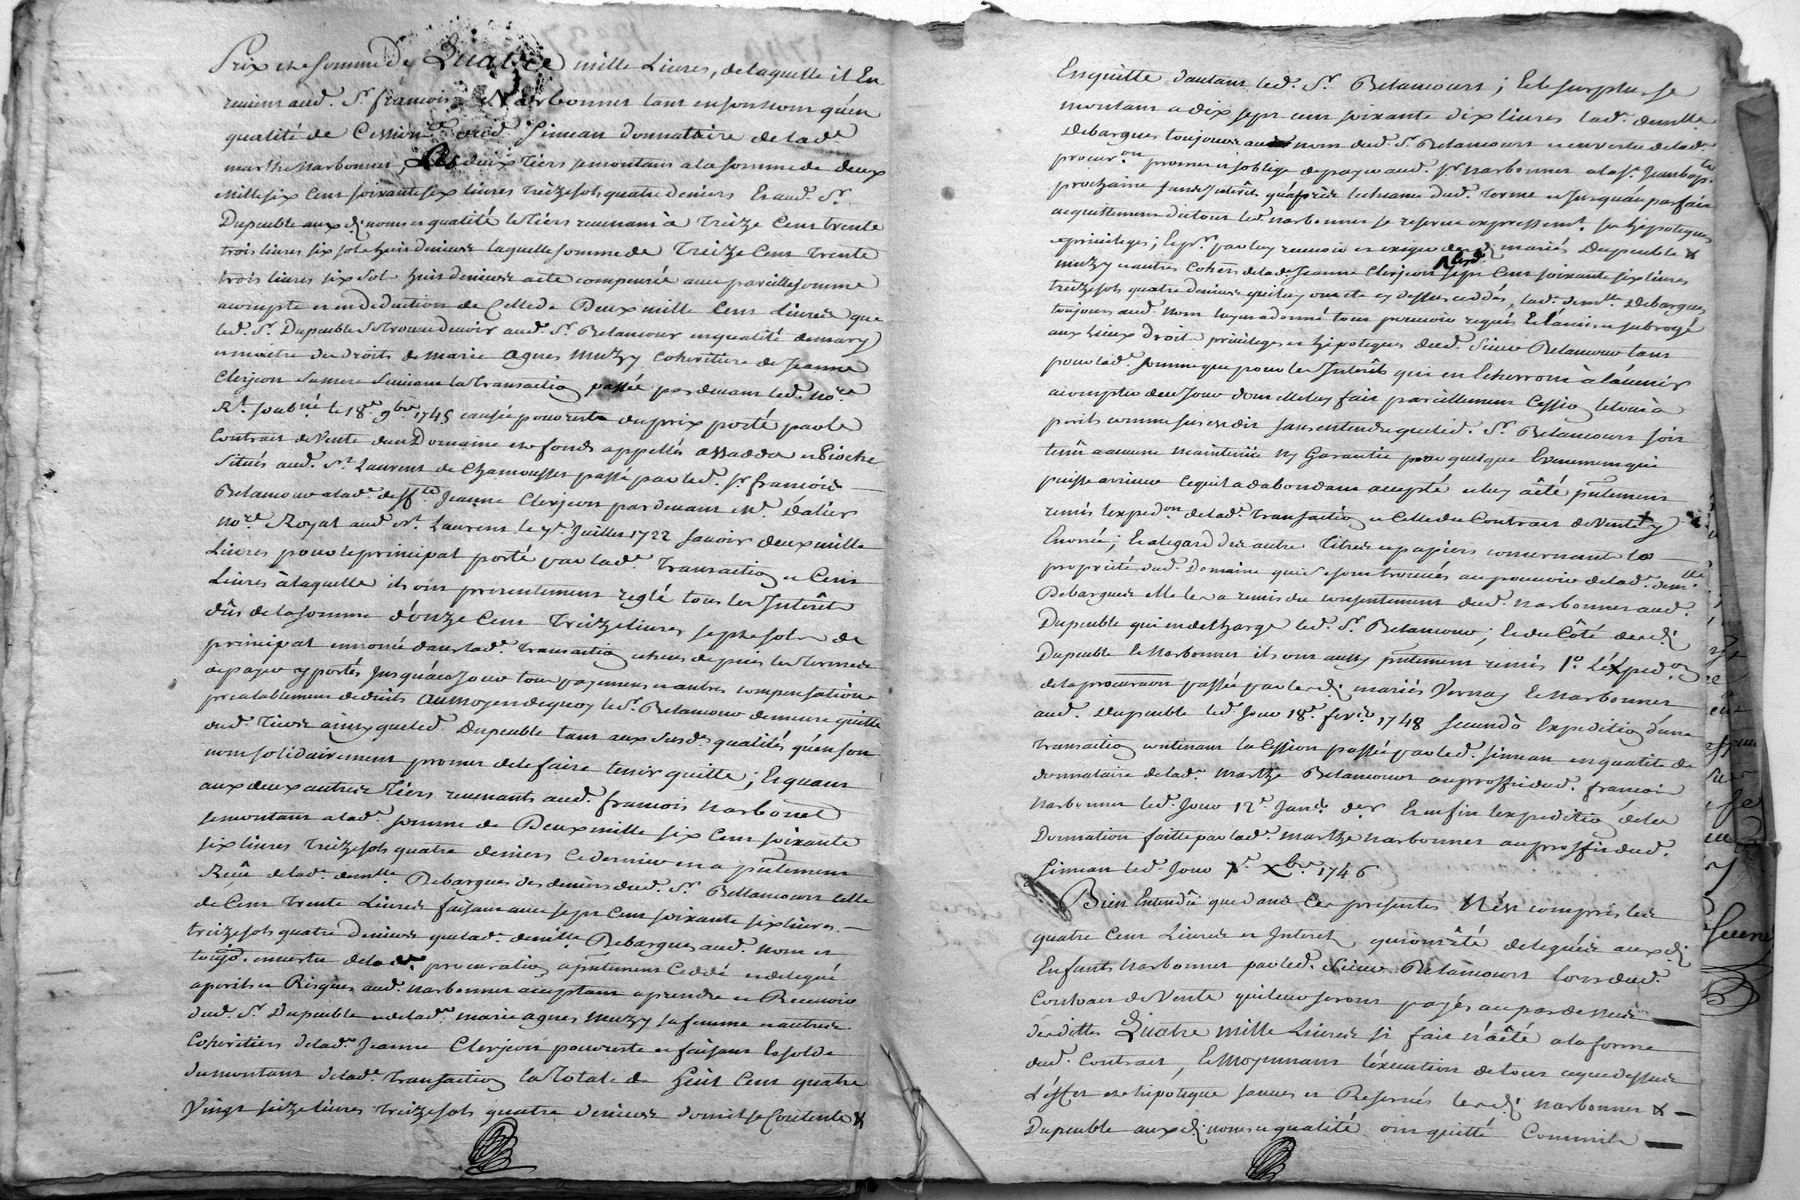 Prix et somme De Quatre mille Livres, de laquelle il En
revient aud. Sr. francois Narbonnet tant en son nom qu'en
qualité de Cessionre. dud. Simean donnataire de lad.e
marthe Narbonnet, Les deux tiers se montans a la somme de deux
mille six Cent soixante six livres treize sols quatre deniers Et aud. Sr.
Dupeuble aux dis noms et qualité le tiers revenant à treize Cent trente
trois livres six sols huit deniers laquelle somme de treize Cent trente
trois livres six sols huit deniers a été compensée avec pareille somme
acompte et en deduction de Celle de Deux mille Cent Livres que
led. Sr. Dupeuble se trouve devoir aud. Sr. Betancour en qualité de mary
et maitre des droits de marie agnes muzy Coheritiere de Jeanne
Clerjeon sa mere suivant la transaction passée pardevant led. nore.
Rl. soubné le 18e. 9bre 1745 causée pour reste du prix porté par le
Contract de Vente d'un Domaine et fonds appellés assadda et Pioche
Situés aud. St. Laurent de Chamousset passé par led. Sr. francois
Betancour a lad. deffte Jeanne Clerjeon pardevant Me. Dalier
nore. Royal aud. St. Laurent le 7e. Juillet 1722 savoir deux mille
Livres pour le principal porté par lad.e transaction et Cent
Livres à laquelle ils ont presentement reglé tous les Interêts
dûs de la somme d'onze Cent treize livres sept sols de
principal enoncée dans lad.e transaction echeus depuis les termes
à payer y portés jusqu'à ce jour tous payemens et autres compensations
prealablement deduits au moyen de quoy led. Betancour demeure quitte
dud. tiers ainsy que led. Dupeuble tant aux susd. qualités qu'en son
nom solidairement promet de le faire tenir quitte; Et quant
aux deux autres tiers revenants aud. francois narbonnet
se montans a lad.e somme de Deux mille six Cent soixante
six livres treize sols quatre deniers Ce dernier en a pntement
Reçû de lad.e demlle Debargues des deniers dud. Sr. Bettancourt celle
de Cent trente Livres faisant avec sept Cent soixante six livres
treize sols quatre deniers que lad.e demlle Debargues aud. nom et
toujo. en vertu de lad.e procuration a pntement Cedé et delegué
a ports et Risques aud. narbonnet acceptant a prendre et Recevoir
dud. Sr. Dupeuble et de lad.e marie agnes muzy sa femme et autres
Coheritiers de lad.e Jeanne Clerjeon pour reste et faisant le solde
du montant de lad.e transaction la totale de huit Cent quatre
Vingt seize livres treize sols quatre deniers dont il se Contente &
Enquitte d'autant led. Sr. Betancourt; Et le surplus se
montant a dix sept cent soixante dix livres lad.e demlle
Debargues toujours aud. nom dud. Sr. Betancourt et en vertu de lad.e
procuron promet et s'oblige de payer aud. Sr. Narbonnet a la St. Jean Bapte
prochaine sans Interêt qu'après lecheance dud. terme et jusqu'au parfait
acquittement du tout led. narbonnet se reserve expressemt. ses hipoteques
et privileges; Et pr. par luy recevoir et exiger desdis mariés Dupeuble &
muzy et autres Cohers. de lad.e Jeanne Clerjeon lesd. sept Cent soixante six livres
treize sols quatre deniers qui luy ont eté cy dessus cedés, lad.e demlle Debargues
toujours aud. nom luy a donné tout pouvoir requis Et l'a mis et subrogé
aux lieux droits privileges et hipoteques dud. Sieur Betancour tant
pour lad.e somme que pour les Interêts qui en Echerront à l'avenir
acompter de ce jour dont elle luy fait pareillement Cession le tout à
ports comme sus est dit sans entendre que led. Sr. Betancourt soit
tenu a aucune maintenüe ny Garantie pour quelque Evenement qui
puisse arriver Ce qui l'a d'abondant accepté et luy a été pntement
remis l'expedon. de lad.e transaction et Celle du Contract de Vente y
Enoncé; Et a legard des autres titres et papiers concernant la
propriété dud. Domaine qui se sont trouvés au pouvoir de lad.e demlle
Debargues elle les a remis du consentement dud. narbonnet aud.
Dupeuble qui en decharge led. Sr. Betancour; Et du Côté desdis
Dupeuble et Narbonnet ils ont aussy pntement remis 1o. l'Expedon
de la procuraon passée par lesdis mariés Vernay et Narbonnet
aud. Dupeuble led. jour 18e. fevrr. 1748 secundò Expedition d'une
transaction contenant la Cession passée par led. Simean en qualité de
donnataire de lad.e marthe Betancour au proffit dud. francois
narbonnet led. jour 12e. Janer. der. Et enfin lexpedition de la
Donnation faitte par lad.e marthe narbonnet au proffit dud.
Simean led. jour Xbre 1746
Bien Entendû que dans Ces presentes N'est compris les
quatre Cent Livres et Interets qui ont été deleguées auxdis
Enfants narbonnet par led. Sieur Betancourt lors dud.
Contract de Vente qui leur seront payés au pardessus
desdittes Quatre mille Livres si fait n'a été a la forme
dud. Contract, Et Moyennant l'éxécution de tout ce que dessus
L'effet et hipoteque sauves et Reservés lesdis narbonnet &
Dupeuble auxdis noms et qualité ont quitté Comm ils